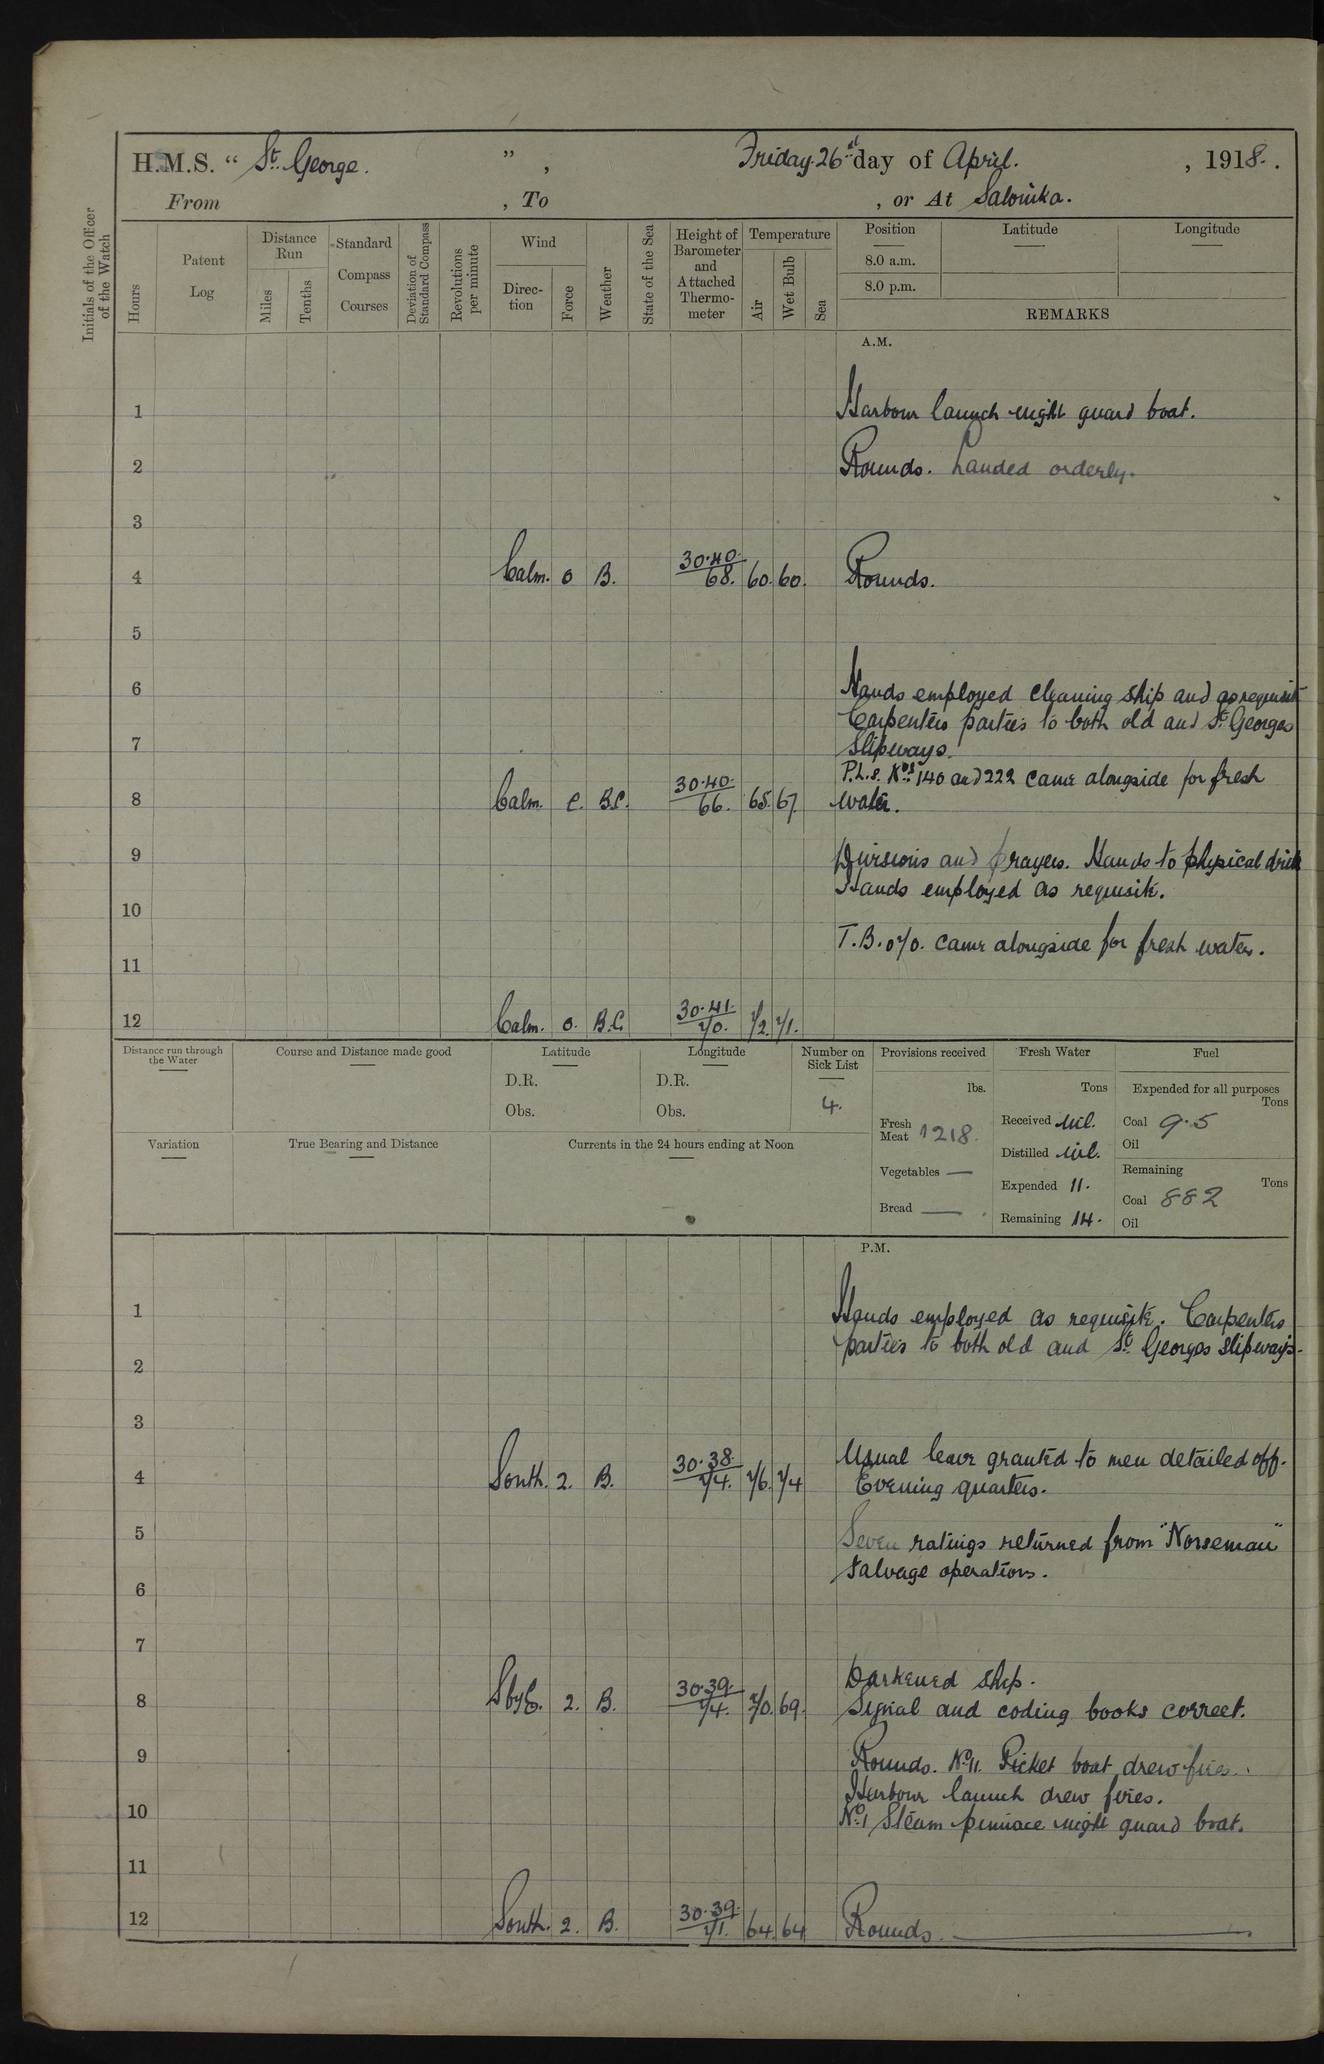 H.M.S. “ St. George. ” , Friday 26th day of April. , 1918. .
From , To , or At Salonika.
Initials of the Officer of the Watch
Hours
Patent Log
Distance Run
Miles
Tenths
Standard Compass Courses
Deviation of Standard Compass
Revolutions per minute
Wind
Direction
Force
Weather
State of the Sea
Height of Barometer and Attached Thermometer
Temperature
Air
Wet Bulb
Sea
Position
8.0 a.m.
8.0 p.m.
Latitude
Longitude
REMARKS
A.M.
1 Harbour launch night guard boat.
2 Rounds. Landed orderly.
3
4 Calm. 0 B. 30.40. 68. 60. 60. Rounds.
5
6 Hands employed cleaning ship and as requisite
Carpenters parties to both old and St. Georges
7 Slipways.
P.L.s. Nos. 140 and 222 came alongside for fresh
8 Calm. C. B.C. 30.40. 66. 65. 67. water.
9 Divisions and prayers. Hands to physical drill
Hands employed as requisite.
10
T.B. 070. came alongside for fresh water.
11
12 Calm. 0. B.C. 30.41. 70. 72. 71.
Distance run through the Water
Course and Distance made good
Latitude
D.R.
Obs.
Longitude
D.R.
Obs.
Number on Sick List
4.
Variation
True Bearing and Distance
Currents in the 24 hours ending at Noon
Provisions received
lbs.
Fresh Meat 1218.
Vegetables —
Bread —
Fresh Water
Tons
Received Nil.
Distilled Nil.
Expended 11.
Remaining 14.
Fuel
Expended for all purposes
Tons
Coal 9.5
Oil
Remaining
Tons
Coal 882
Oil
P.M.
1 Hands employed as requisite. Carpenters
parties to both old and St. Georges slipways.
2
3
Usual leave granted to men detailed off.
4 South. 2. B. 30.38. 74. 76. 74 Evening quarters.
5 Seven ratings returned from "Norseman"
salvage operations.
6
7
Darkened ship.
8 SbyE. 2. B. 30.39. 74. 70. 69. Signal and coding books correct.
9 Rounds. No. 11. Picket boat drew fires.
Harbour launch drew fires.
10 No. 1 Steam pinnace night guard boat.
11
12 South. 2. B. 30.39. 71. 64. 64 Rounds.